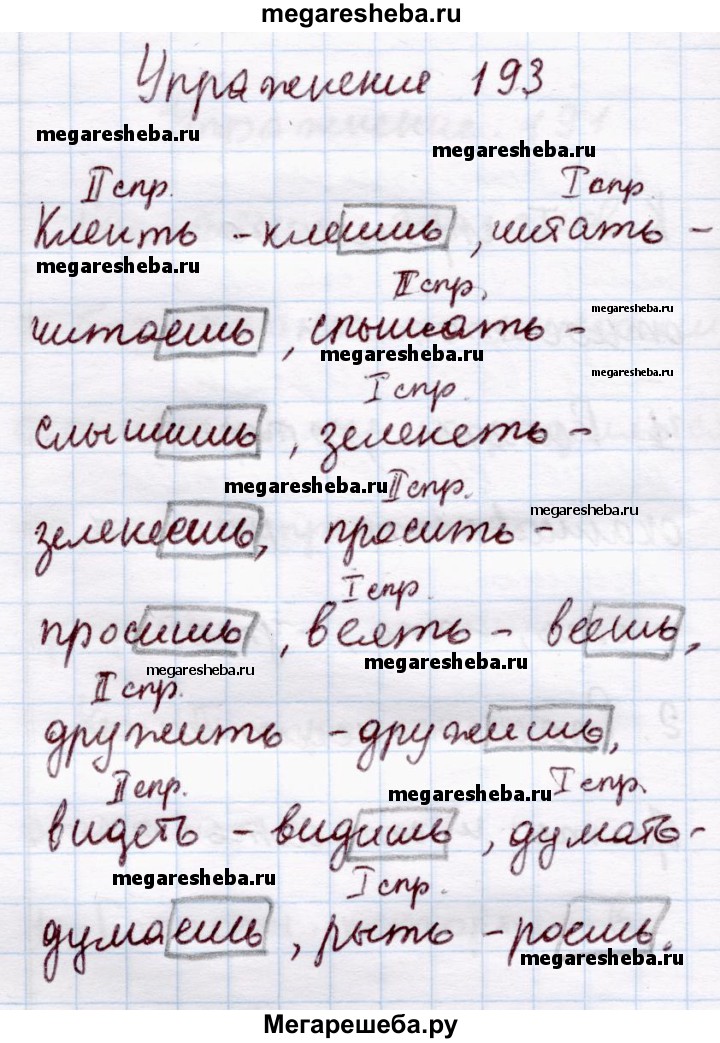 megaresheba.ru
Упражнение 193
megaresheba.ru
megaresheba.ru
II спр. I спр
Клеить - клеишь, читать -
megaresheba.ru
II спр.
megaresheba.ru
читаешь, слышать -
megaresheba.ru
megaresheba.ru
I спр.
слышишь, зеленеть -
megaresheba.ru
II спр.
megaresheba.ru
зеленеешь, просить -
I спр.
просишь, веять - веешь,
megaresheba.ru
megaresheba.ru
II спр.
дружить - дружишь,
II спр. I спр.
megaresheba.ru
видеть - видишь, думать -
megaresheba.ru
I спр.
думаешь, рыть - роешь.
megaresheba.ru
megaresheba.ru
Мегарешеба.ру